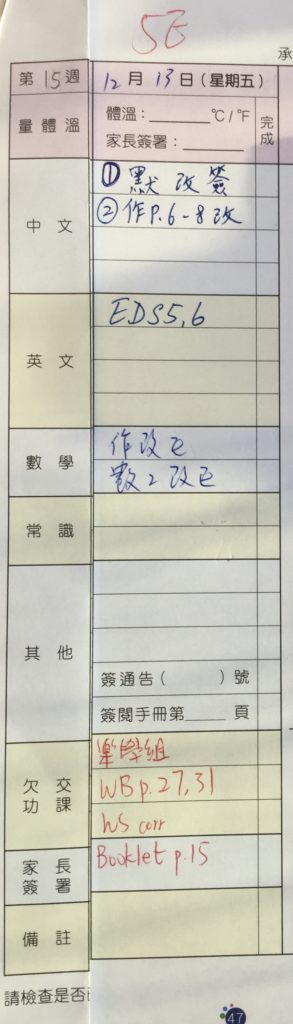 5E
承
第 15 週 12 月 13 日 (星期五)
量體溫 體溫：______ °C / °F 完成
家長簽署：______
中文 ① 默 改 簽
② 作 P.6-8 改
英文 EDS5,6
數學 作改E
數2改E
常識
其他
簽通告 ( ) 號
簽閱手冊第____ 頁
欠交功課 樂學組
WB p.27,31
WS corr
家長簽署 Booklet p.15
備註
請檢查是否
47